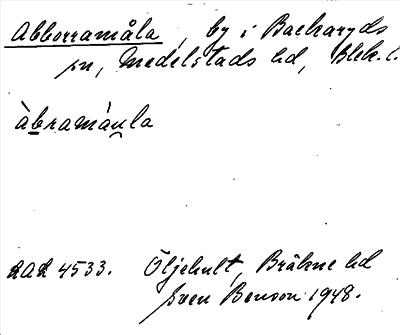 Abborramåla, by i Backaryds
sn, Medelstads hd, Blek. l.
àbramáu̯la
LAL 4533. Öljehult, Bräkne hd
Sven Benson 1948.